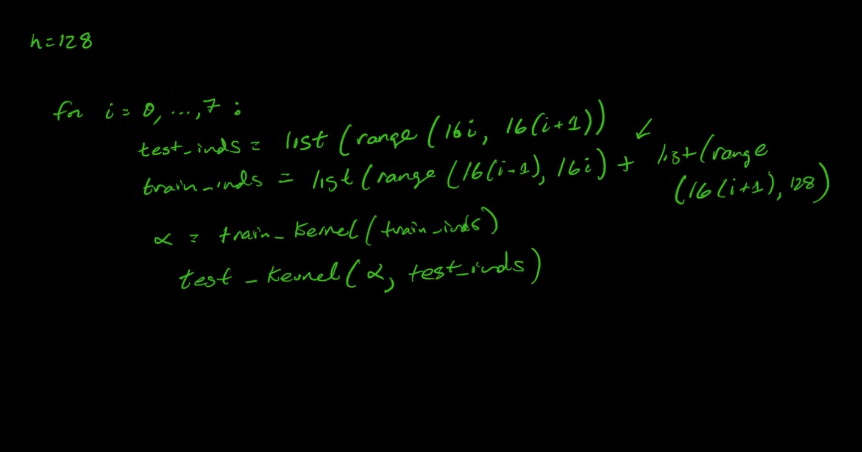 n=128
for i = 0, ..., 7 :
test_inds = list (range (16i, 16(i+1))
train_inds = list (range (16(i-1), 16i) + list (range
(16(i+1), 128)
α = train_kernel (train_inds)
test_kernel (α, test_inds)